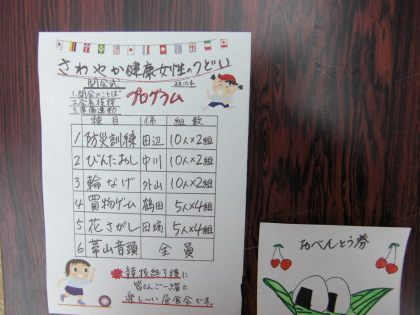 さわやか健康女性のつどい
開会式
1.開会のことば
2.会長挨拶
3.準備運動
プログラム
種目 係 組数
1 防災訓練 田辺 10人×2組
2 びんたおし 中川 10人×2組
3 輪なげ 外山 10人×2組
4 買物ゲーム 鶴田 5人×4組
5 花さがし 田端 5人×4組
6 帯山音頭 全員
競技終了後に
皆さんご一緒に
楽しい昼食会です。
おべんとう券